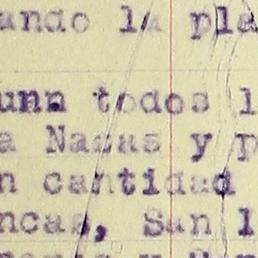 ando la pla
una todos l
a Nazas y p
n cantidad
ncas, San l